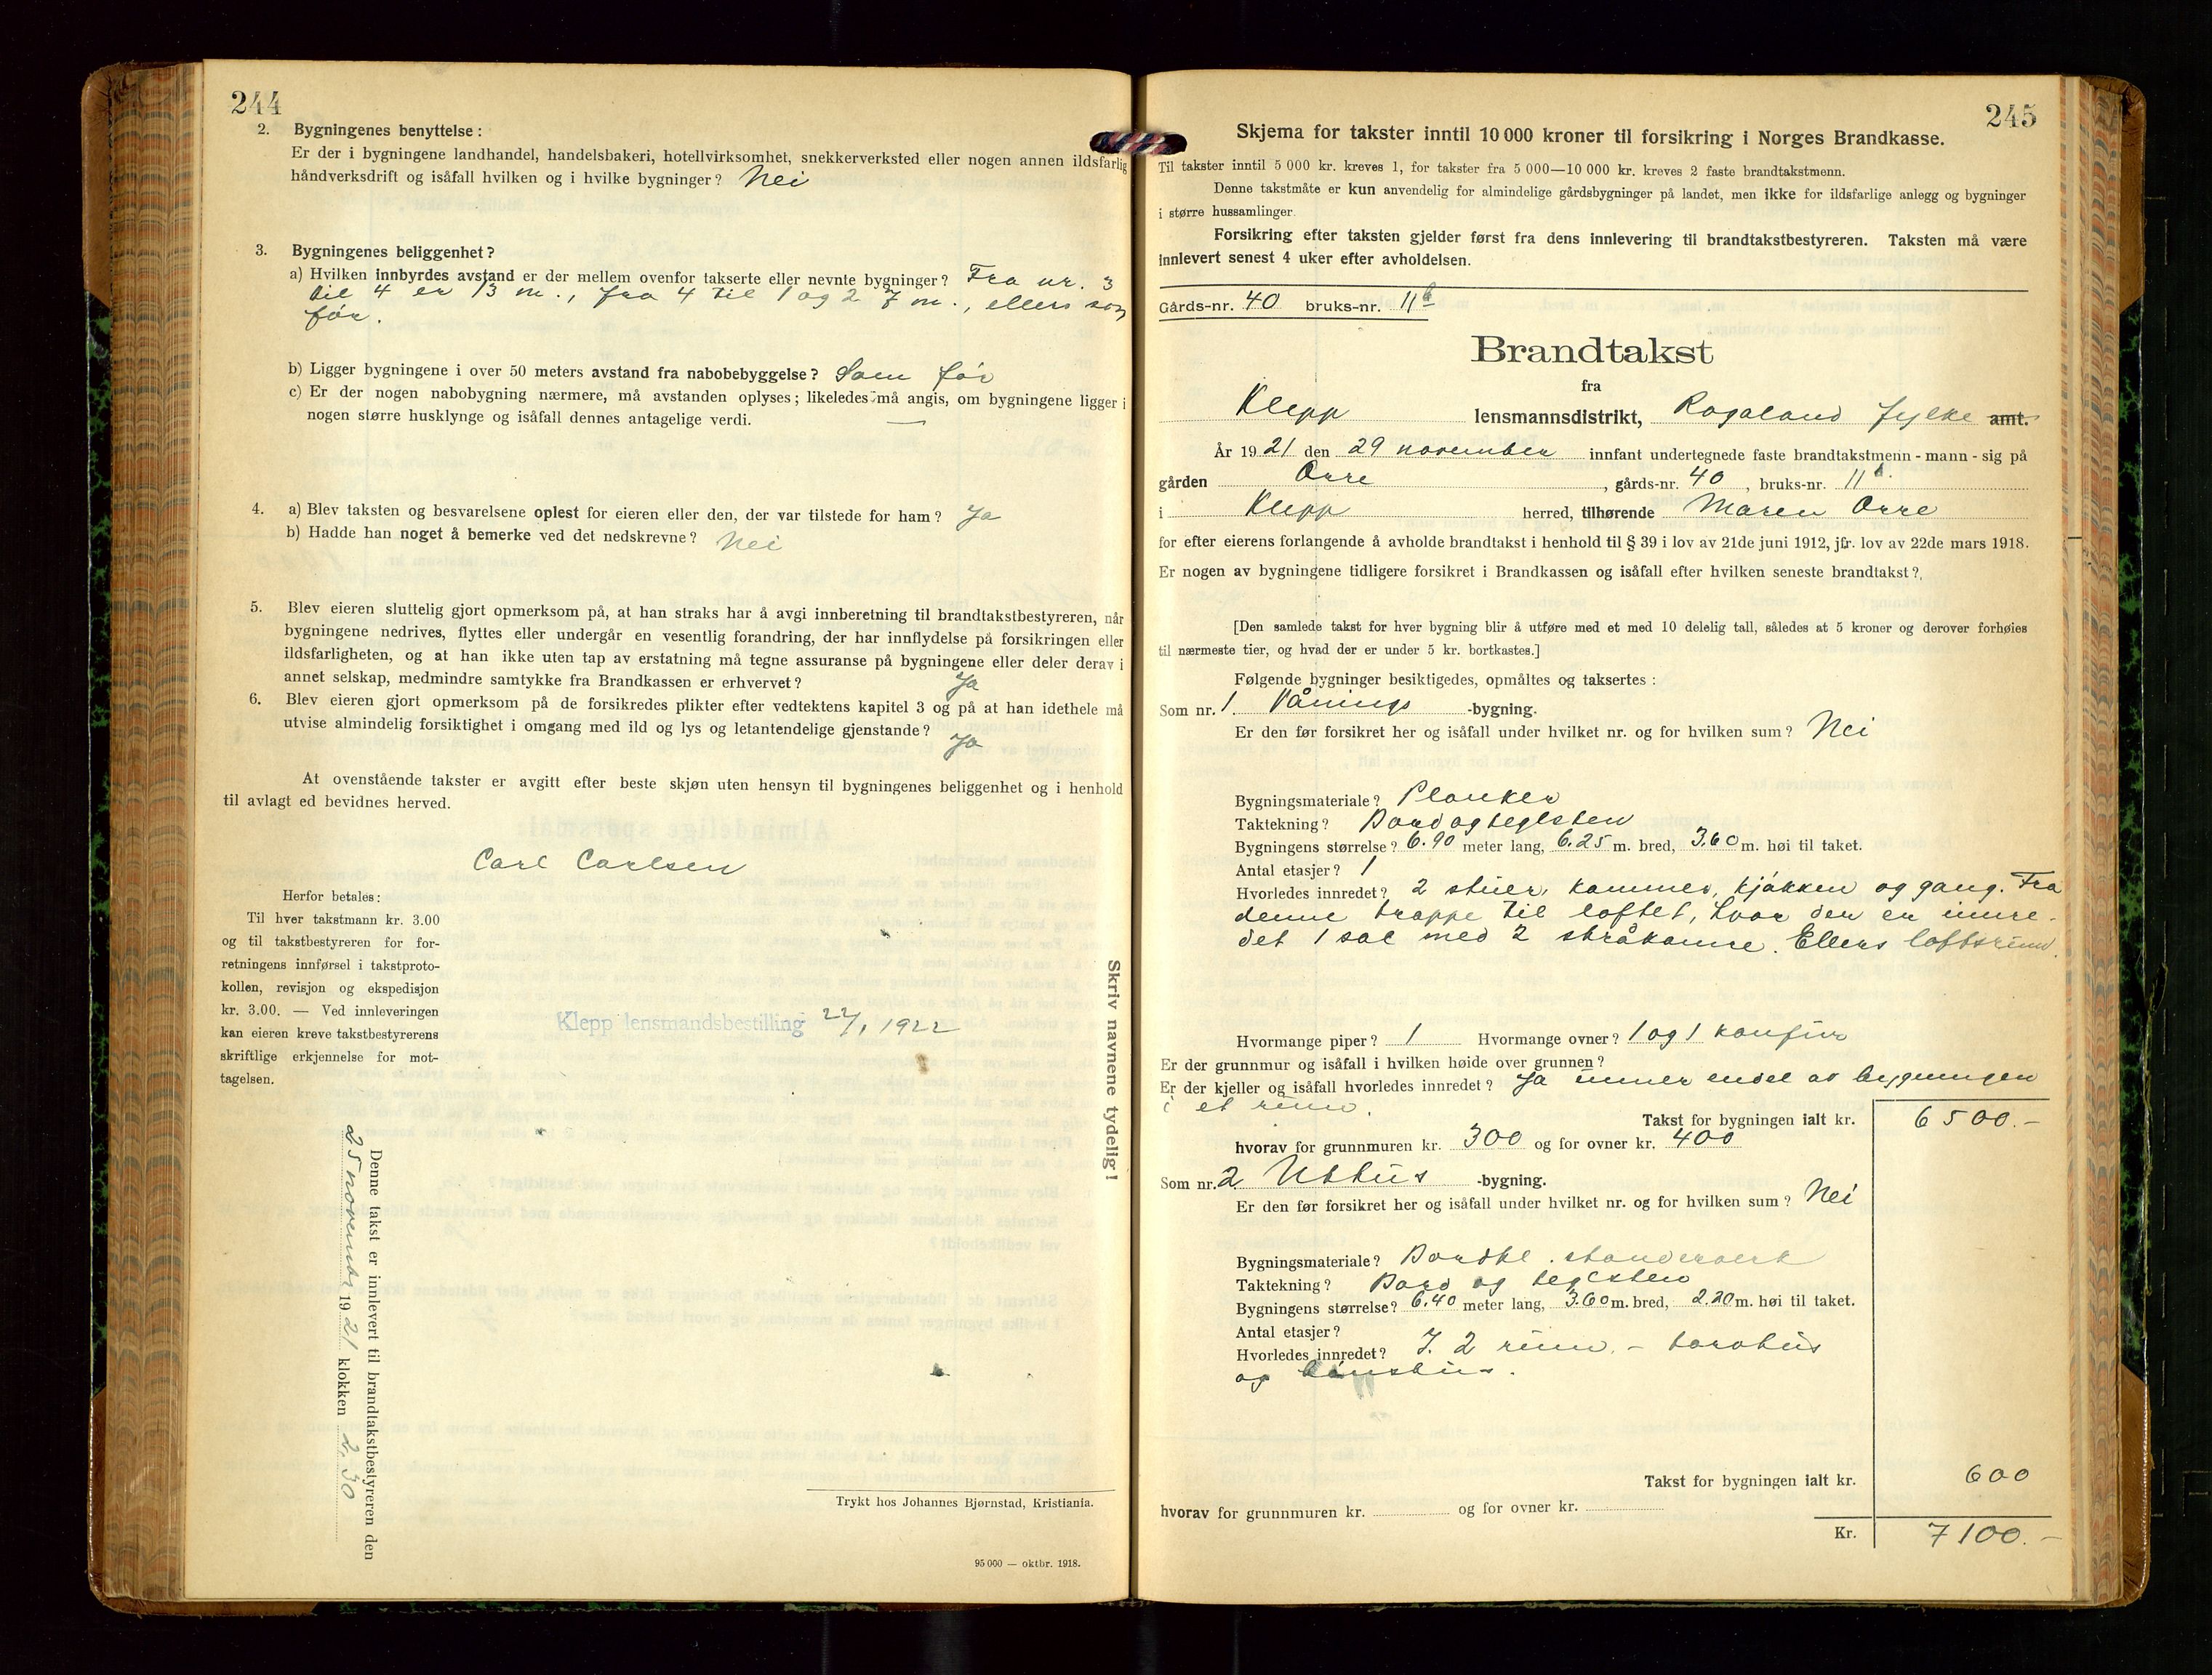 244
2. Bygningenes benyttelse:
Er der i bygningene landhandel, handelsbakeri, hotellvirksomhet, snekkerverksted eller nogen annen ildsfarlig
håndverksdrift og isåfall hvilken og i hvilke bygninger? Nei
3. Bygningenes beliggenhet?
a) Hvilken innbyrdes avstand er der mellem ovenfor takserte eller nevnte bygninger? Fra nr. 3
til 4 er 13 m., fra 4 til 1 og 2 7 m., ellers som
før.
b) Ligger bygningene i over 50 meters avstand fra nabobebyggelse? Som før
c) Er der nogen nabobygning nærmere, må avstanden oplyses; likeledes må angis, om bygningene ligger i
nogen større husklynge og isåfall dennes antagelige verdi. —
4. a) Blev taksten og besvarelsene oplest for eieren eller den, der var tilstede for ham? Ja
b) Hadde han noget å bemerke ved det nedskrevne? Nei
5. Blev eieren sluttelig gjort opmerksom på, at han straks har å avgi innberetning til brandtakstbestyreren, når
bygningene nedrives, flyttes eller undergår en vesentlig forandring, der har innflydelse på forsikringen eller
ildsfarligheten, og at han ikke uten tap av erstatning må tegne assuranse på bygningene eller deler derav i
annet selskap, medmindre samtykke fra Brandkassen er erhvervet? Ja
6. Blev eieren gjort opmerksom på de forsikredes plikter efter vedtektens kapitel 3 og på at han idethele må
utvise almindelig forsiktighet i omgang med ild og lys og letantendelige gjenstande? Ja
At ovenstående takster er avgitt efter beste skjøn uten hensyn til bygningenes beliggenhet og i henhold
til avlagt ed bevidnes herved.
Carl Carlsen
Herfor betales:
Til hver takstmann kr. 3.00
og til takstbestyreren for for-
retningens innførsel i takstproto-
kollen, revisjon og ekspedisjon
kr. 3.00. — Ved innleveringen
kan eieren kreve takstbestyrerens
skriftlige erkjennelse for mot-
tagelsen.
Klepp lensmandsbestilling 27/1 1922
Skriv navnene tydelig!
Denne takst er innlevert til brandtakstbestyreren den
25 november 1921 klokken 2,30
Trykt hos Johannes Bjørnstad, Kristiania.
95 000 — oktbr. 1918.
245
Skjema for takster inntil 10 000 kroner til forsikring i Norges Brandkasse.
Til takster inntil 5 000 kr. kreves 1, for takster fra 5 000—10 000 kr. kreves 2 faste brandtakstmenn.
Denne takstmåte er kun anvendelig for almindelige gårdsbygninger på landet, men ikke for ildsfarlige anlegg og bygninger
i større hussamlinger.
Forsikring efter taksten gjelder først fra dens innlevering til brandtakstbestyreren. Taksten må være
innlevert senest 4 uker efter avholdelsen.
Gårds-nr. 40 bruks-nr. 11b
Brandtakst
fra
Klepp lensmannsdistrikt, Rogaland fylke amt.
År 1921 den 29 november innfant undertegnede faste brandtakstmenn - mann - sig på
gården Orre, gårds-nr. 40, bruks-nr. 11b.
i Klepp herred, tilhørende Maren Orre
for efter eierens forlangende å avholde brandtakst i henhold til § 39 i lov av 21de juni 1912, jfr. lov av 22de mars 1918.
Er nogen av bygningene tidligere forsikret i Brandkassen og isåfall efter hvilken seneste brandtakst?
[Den samlede takst for hver bygning blir å utføre med et med 10 delelig tall, således at 5 kroner og derover forhøies
til nærmeste tier, og hvad der er under 5 kr. bortkastes.]
Følgende bygninger besiktigedes, opmåltes og taksertes:
Som nr. 1. Vånings -bygning.
Er den før forsikret her og isåfall under hvilket nr. og for hvilken sum? Nei
Bygningsmateriale? Planker
Taktekning? Bord og teglsten
Bygningens størrelse? 6.90 meter lang, 6.25 m. bred, 3.60 m. høi til taket.
Antal etasjer? 1
Hvorledes innredet? 2 stuer, kammer, kjøkken og gang. Fra
denne trappe til loftet, hvor der er innre-
det 1 sal med 2 Ellers loftsrum.
Hvormange piper? 1 Hvormange ovner? 1 og 1 komfur
Er der grunnmur og isåfall i hvilken høide over grunnen?
Er der kjeller og isåfall hvorledes innredet? Ja under endel av bygningen
i et rum.
Takst for bygningen ialt kr. 6500.-
hvorav for grunnmuren kr. 300 og for ovner kr. 400
Som nr. 2 Uthus -bygning.
Er den før forsikret her og isåfall under hvilket nr. og for hvilken sum? Nei
Bygningsmateriale? Bordkl. standerverk
Taktekning? Bord og teglsten
Bygningens størrelse? 6.40 meter lang, 3.60 m. bred, 2.20 m. høi til taket.
Antal etasjer?
Hvorledes innredet? I 2 rum. - torvhus
og hønsehus.
Takst for bygningen ialt kr. 600
hvorav for grunnmuren kr. og for ovner kr.
Kr. 7100.-